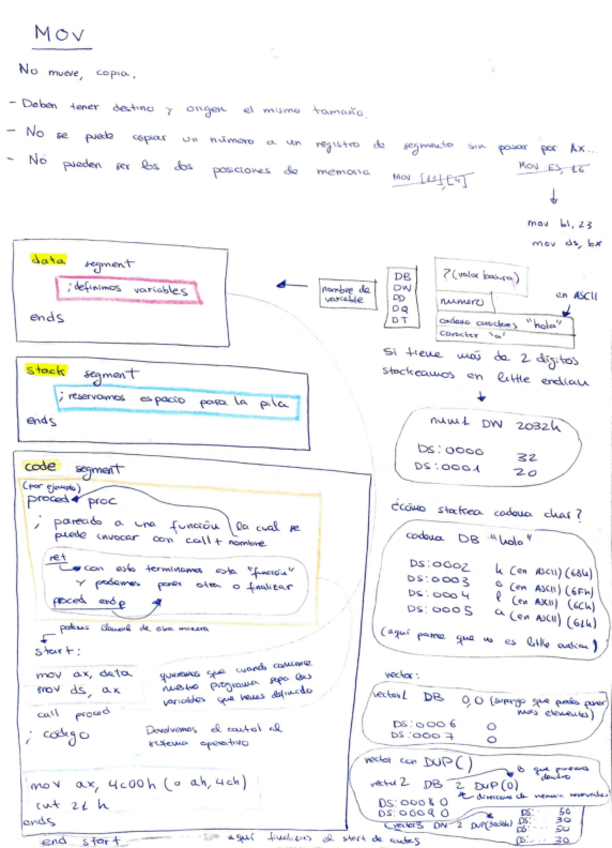 MOV
No mueve, copia.
- Deben tener destino y origen el mismo tamaño.
- No se puede copiar un número a un registro de segmento sin pasar por Ax...
MOV ES, 16
- No pueden ser los dos posiciones de memoria MOV [13],[4]
mov bl, 23
mov ds, bx
data segment
; definimos variables
ends
nombre de variable
DB
DW
DD
DQ
DT
? (valor basura)
numero
cadena caracteres "hola"
caracter 'a'
en ASCII
si tiene más de 2 dígitos
stackeamos en little endian
stack segment
; reservamos espacio para la pila
ends
num1 DW 2032h
DS:0000 32
DS:0001 20
code segment
(por ejemplo)
proced proc
; parecido a una función la cual se
puede invocar con call + nombre
ret
con esto terminamos esta "función"
y podemos poner otra o finalizar
proced endp
podemos llamarlo de otra manera
start:
mov ax, data
mov ds, ax
queremos que cuando comience
nuestro programa pepa las
variables que hemos definido
call proced
; codigo
Devolvemos el control al
sistema operativo
mov ax, 4c00h (o ah, 4ch)
int 21 h
ends
end start
aquí finalizas el start de antes
¿cómo stackea cadena char?
cadena DB "hola"
DS:0002 h (en ASCII) (68h)
DS:0003 o (en ASCII) (6Fh)
DS:0004 l (en ASCII) (6Ch)
DS:0005 a (en ASCII) (61h)
(aquí parece que no es little endian)
vector:
vector1 DB 0,0 (supongo que puedes poner
más elementos)
DS:0006 0
DS:0007 0
vector con DUP()
lo que ponemos
dentro
vector2 DB 2 DUP(0)
direcciones de memoria reservadas
DS:0008 0
DS:0009 0
vector3 DW 2 DUP(3050h)
DS: 50
DS: 30
DS: 50
DS: 30